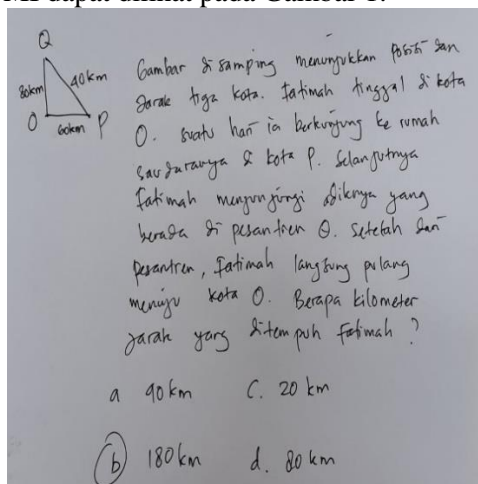 MI dapat dilihat pada Gambar 1.
Q
80km
40km
O
60km
P
Gambar di samping menunjukkan posisi dan
jarak tiga kota. Fatimah tinggal di kota
O. suatu hari ia berkunjung ke rumah
saudaranya di kota P. Selanjutnya
Fatimah mengunjungi adiknya yang
berada di pesantren Q. Setelah dari
pesantren, Fatimah langsung pulang
menuju kota O. Berapa kilometer
jarak yang ditempuh Fatimah ?
a 90 km
C. 20 km
b 180 km
d. 80 km